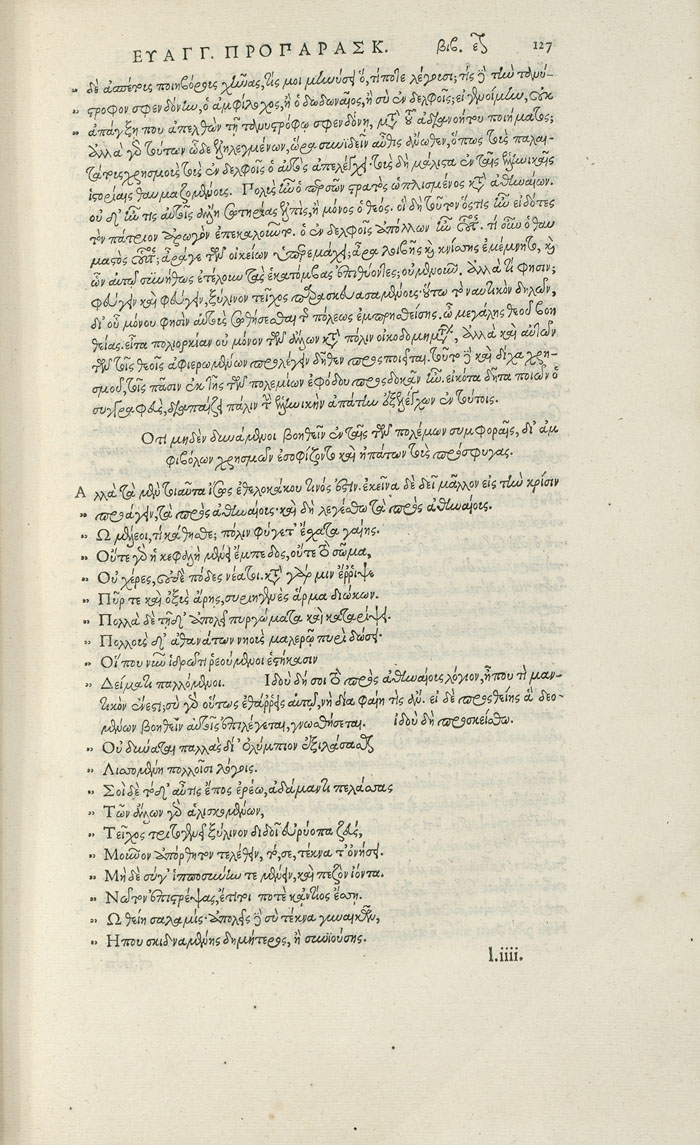 ΕΥΑΓΓ. ΠΡΟΠΑΡΑΣΚ. βιβ. 127
στροφον σφενδόνην, ὁ ἀμφίλοχος, ἢ ὁ δωδωναῖος, ἢ σὺ ἐν δελφοῖς; εἰ γένοιμην, οὐκ
ἀπάγξῃ που ἀπελθὼν τῇ σφενδόνῃ, μετὰ τοῦ ἀδιανοήτου ποιήματος;
ἀλλὰ γὰρ τούτων ὧδε ἐληλεγμένων, ὥρα συνιδεῖν αὖθις ἄνωθεν, ὅπως τοὺς παλαι-
τάτοις χρησμοὺς τοὺς ἐν δελφοῖς ὁ αὐτὸς ἀπελέγχει τοὺς δὴ μάλιστα ἐν ταῖς ἑλληνικαῖς
ἱστορίαις θαυμαζομένοις. Πολὺς ἦν ὁ περσῶν στρατὸς ὡπλισμένος κατὰ ἀθηναίων.
οὐ δ' ἦν τις αὐτοῖς ἄλλη σωτηρίας ἐλπὶς, ἢ μόνος ὁ θεός. οἱ δὲ τοῦτον ὅστις ἦν εἰδότες
τὸν πάτριον ἀρωγὸν ἐπεκαλοῦντο. ὁ ἐν δελφοῖς ἀπόλλων ἦν οὗτος. τί οὖν ὁ θαυ
μαστὸς οὗτος; ἆράγε τῶν οἰκείων ὑπερεμάχει; ἆρα λοιβῆς καὶ κνίσσης ἐμέμνητο, καὶ
ὧν αὐτῷ συνήθως ἐτέλουν τὰς ἑκατόμβας ἐπιθύοντες; οὐμενοῦν. ἀλλὰ τί φησιν;
φεύγειν καὶ φεύγειν, ξύλινον τεῖχος παρασκευασαμένοις· οὕτω τὸ ναυτικὸν δηλῶν,
δι' οὗ μόνου φησὶν αὐτοὺς σωθήσεσθαι τῆς πόλεως ἐμπρησθείσης. ὢ μεγάλης θεοῦ βοη
θείας. εἶτα πολιορκίαν οὐ μόνον τῶν ἄλλων κατὰ πόλιν οἰκοδομημάτων, ἀλλὰ καὶ αὐτῶν
τῶν τοῖς θεοῖς ἀφιερωμένων προλέγειν δῆθεν προσποιεῖται. τοῦτο δὲ καὶ δίχα χρη-
σμοῦ, τοῖς πᾶσιν ἐκ τῆς τῶν πολεμίων ἐφόδου προσδοκᾶν ἦν. εἰκότα δῆτα ποιῶν ὁ
συγγραφεὺς, διαπαίζει πάλιν τὴν ἑλληνικὴν ἀπάτην ἐξελέγχων ἐν τούτοις.
Ὅτι μηδὲν δυνάμενοι βοηθεῖν ἐν ταῖς τῶν πολέμων συμφοραῖς, δι' ἀμ
φιβόλων χρησμῶν ἐσοφίζοντο καὶ ἠπάτων τοὺς πρόσφυγας.
Α λλὰ τὰ μὲν τοιαῦτα ἴσως ἐθελοκάκου τινός ἐστιν. ἐκεῖνα δὲ δεῖ μᾶλλον εἰς τὴν κρίσιν
„ προάγειν, τὰ πρὸς ἀθηναίοις· καὶ δὴ λεγέσθω τὰ πρὸς ἀθηναίοις.
„ Ὦ μέλεοι, τί κάθησθε; πόλιν φύγετ' ἔσχατα γαίης.
„ Οὔτε γὰρ ἡ κεφαλὴ μένει ἔμπεδος, οὔτε τὸ σῶμα,
„ Οὐ χέρες, οὐδὲ πόδες νέατοι. κατὰ γάρ μιν ἔρριψε
„ Πῦρ τε καὶ ὀξὺς ἄρης, συριηγενὲς ἅρμα διώκων.
„ Πολλὰ δὲ τῇσδ' ἀπολεῖ πυργώματα καὶ καταρίψει.
„ Πολλοὺς δ' ἀθανάτων νηοὺς μαλερῷ πυρὶ δώσει·
„ Οἵ που νῦν ἱδρῶτι ῥεούμενοι ἑστήκασιν
„ Δείματι παλλόμενοι. Ἰδοὺ δή σοι τὸ πρὸς ἀθηναίοις λόγιον, ἦ που τὶ μαν-
τικὸν ἔνεστι; σὺ γὰρ οὕτως ἐθάρρεις αὐτῷ, νὴ δία φαίη τις ἄν. εἰ δὲ προσθείης ἃ δεο-
μένων βοηθεῖν αὐτοῖς ἐπιλέγεται, γνωσθήσεται. ἰδοὺ δὴ προσκείσθω.
„ Οὐ δύναται παλλὰς δί' ὀλύμπιον ἐξιλάσασθαι
„ Λισσομένη πολλοῖσι λόγοις.
„ Σοὶ δὲ τόδ' αὖτις ἔπος ἐρέω, ἀδάμαντι πελάσσας
„ Τῶν ἄλλων γὰρ ἁλισκομένων,
„ Τεῖχος τριτογενεῖ ξύλινον διδοῖ εὐρύοπα ζεὺς,
„ Μοῦνον ἀπόρθητον τελέθειν, τό, σε, τέκνα τ' ὀνήσει.
„ Μηδὲ σύγ' ἱπποσύνην τε μένειν, καὶ πεζὸν ἰόντα.
„ Νῶτον ἐπιστρέψας, ἔτι τοι ποτὲ κἀντίος ἔσσῃ.
„ Ὦ θείη σαλαμὶς· ἀπολεῖς δὲ σὺ τέκνα γυναικῶν,
„ Ἤπου σκιδναμένης δημήτερος, ἢ συνιούσης.
l.iiii.